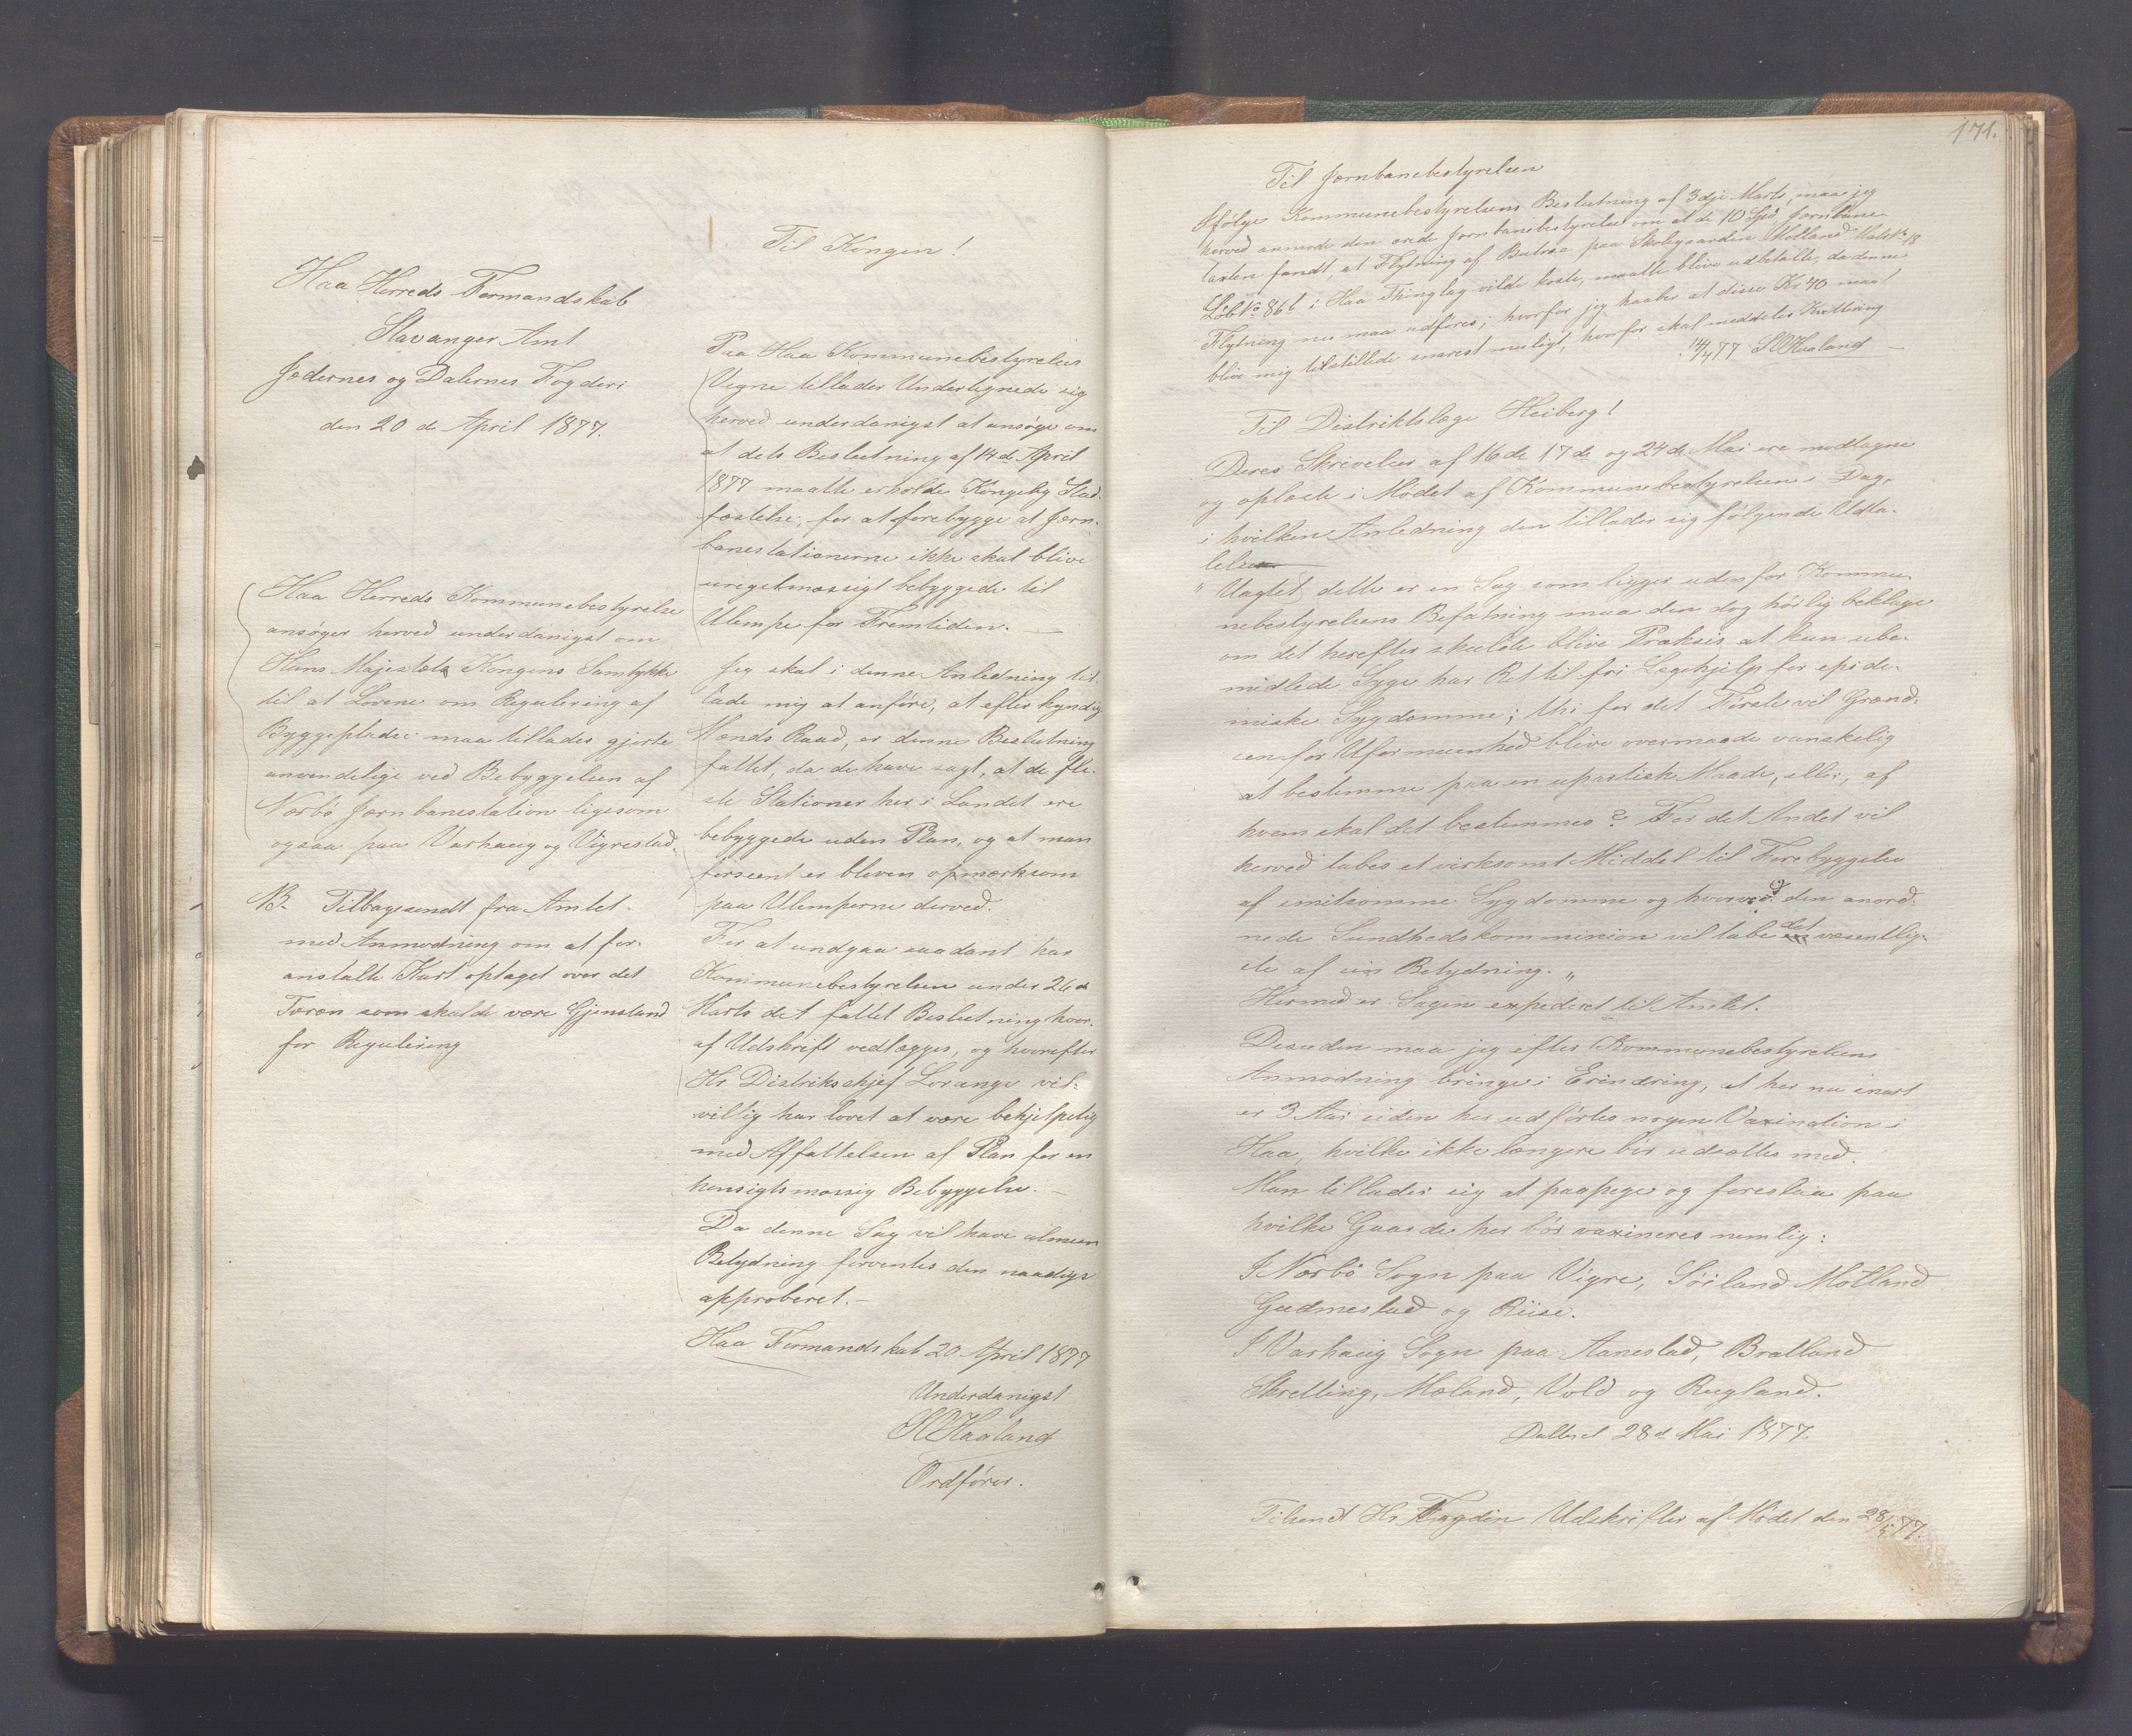 Haa Herreds Formandskab
Stavanger Amt
Jæderens og Dalernes Fogderi
den 20de April 1877.
Haa Herreds Kommunebestyrelse
ansøger herved underdanigst om
Hans Majestæts Kongens Samtykke
til at Lovene om Regulering af
Byggepladse maa tillades gjorte
anvendelige ved Bebyggelsen af
Nærbø Jærnbanestation ligesom
ogsaa paa Varhaug og Vigrestad.
NB. Tilbagesendt fra Amtet
med Anmodning om at for-
anstalte Kart optaget over det
Teræn som skulde være Gjenstand
for Regulering
Til Kongen!
Paa Haa Kommunebestyrelses
Vegne tillader Undertegnede sig
herved underdanigst at ansøge om
at dets Beslutning af 14de April
1877 maatte erholde Kongelig Stad-
fæstelse, for at forebygge at Jærn-
banestationerne ikke skal blive
uregelmæssigt bebyggede til
Ulempe for Fremtiden. —
Jeg skal i denne Anledning til-
lade mig at anføre, at efter kyndig
Mænds Raad, er denne Beslutning
fattet, da de have sagt, at de fle-
ste Stationer her i Landet ere
bebyggede uden Plan, og at man
forseent er bleven opmærksom
paa Ulemperne derved.
For at undgaa saadant har
Kommunebestyrelsen under 26de
Marts det fattet Beslutning hvor-
af Udskrift vedlægges, og hvorefter
Hr Distrikschef Lorange vel-
villig har lovet at være behjelpelig
med Affattelsen af Plan for en
hensigtsmæssig Bebyggelse. —
Da denne Sag vil have almeen
Betydning forventes den naadigst
approberet. —
Haa Formandskab 20 April 1877
Underdanigst
SOHaaland
Ordfører.
171.
Til Jærnbanebestyrelsen
Ifølge Kommunebestyrelsens Beslutning af 3dje Marts, maa jeg
herved anmode den ærede Jærnbanebestyrelse om at de 10 Spd Jærnbane-
taxten fandt, at Flytning af Buebraa paa Skolegaarden Motland Matr No 18
Løb No 86b i Haa Thinglag vilde koste, maatte blive udbetalte, da denne
Flytning nu maa udføres; hvorfor jeg haaber at disse Kr 40 maa
blive mig tilstillede snarest muligt, hvorfor skal meddeles Kvittering
14/4 77 SOHaaland —
Til Distriktslæge Heiberg!
Deres Skrivelser af 16de 17de og 24de Mai ere modtagne
og oplæste i Mødet af Kommunebestyrelsen i Dag,
i hvilken Anledning den tillader sig følgende Udta-
lelse
" Uagtet dette er en Sag som ligger udenfor Kommu-
nebestyrelsens Befatning maa den dog høilig beklage
om det herefter skulde blive Praksis at kun ube-
midlede Syge har Ret til fri Lægehjelp for epide-
miske Sygdomme; thi for det Første vil Grænd-
sen for Uformuenhed blive overmaade vanskelig
at bestemme paa en upartisk Maade, eller, af
hvem skal det bestemmes? For det Andet vil
herved tabes et virksomt Middel til Forebyggelse
af smitsomme Sygdomme og hvorved den anord-
nede Sundhedskommission vil tabe det væsentlig-
ste af sin Betydning. "
Hermed er Sagen expederet til Amtet.
Desuden maa jeg efter Kommunebestyrelsens
Anmodning bringe i Erindring, at her nu snart
er 3 Aar siden her udførtes nogen Vaxination i
Haa, hvilke ikke længere bør udsættes med.
Man tillader sig at paapege og foreslaa paa
hvilke Gaarde her bør vaxineres nemlig:
I Nærbø Sogn paa Vigre, Søiland Motland
Gudmestad og Riise.
I Varhaug Sogn paa Aanestad, Bratland
Skretting, Mæland, Vold og Rugland.
Datteret 28de Mai 1877.
Tilsendt Hr Fogden Udskrifter af Mødet den 28/5 77.